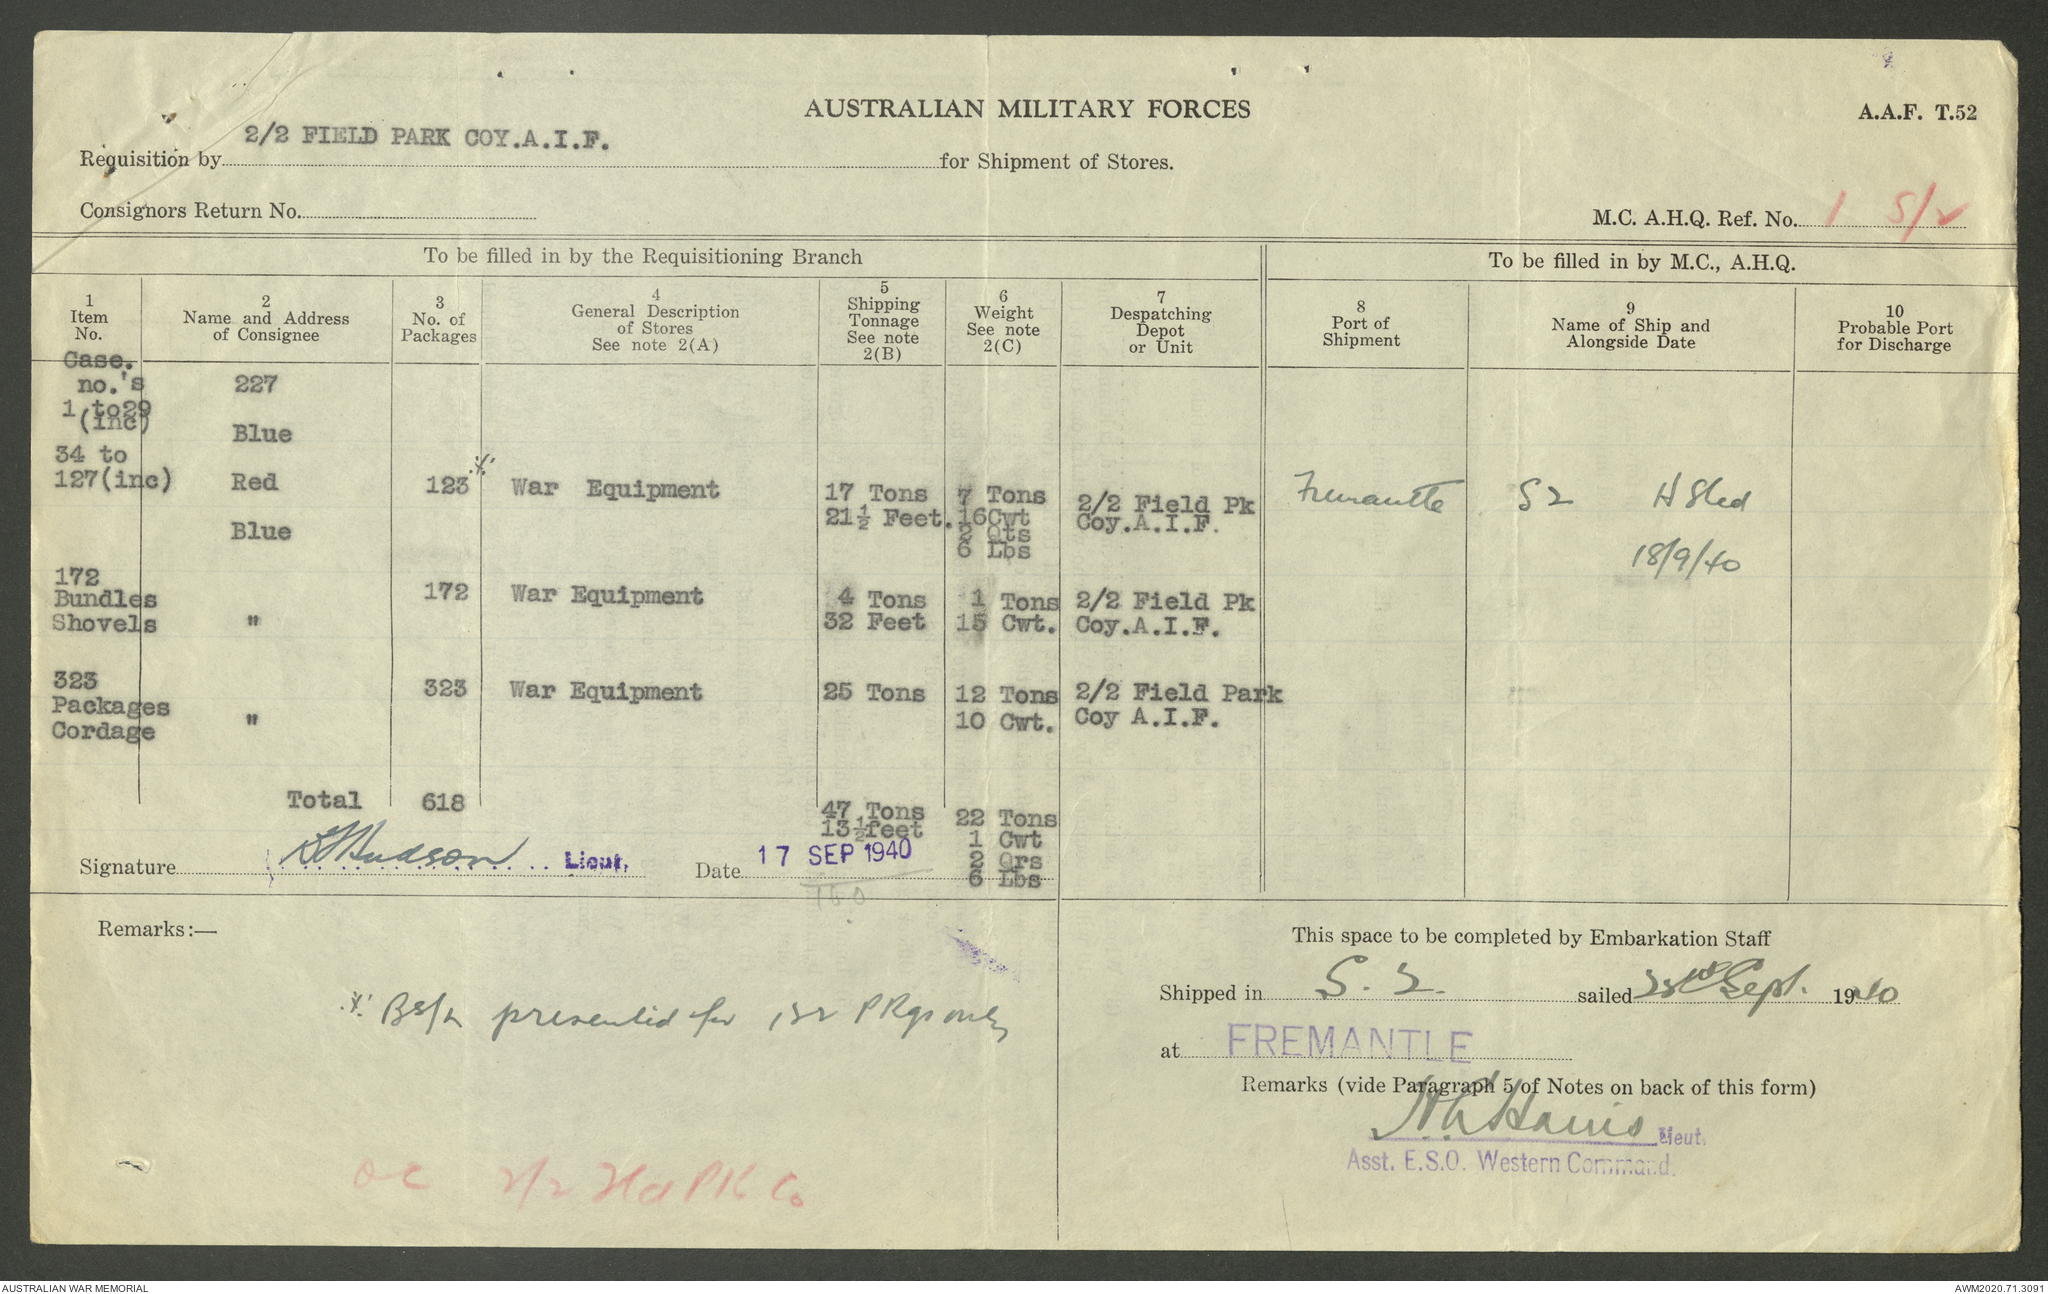 AUSTRALIAN MILITARY FORCES
A.A.F. T.52
Requisition by 2/2 FIELD PARK COY.A.I.F. for Shipment of Stores.
Consignors Return No.
M.C. A.H.Q. Ref. No. 1 5/2
To be filled in by the Requisitioning Branch
To be filled in by M.C., A.H.Q.
1 Item No.
2 Name and Address of Consignee
3 No. of Packages
4 General Description of Stores See note 2(A)
5 Shipping Tonnage See note 2(B)
6 Weight See note 2(C)
7 Despatching Depot or Unit
8 Port of Shipment
9 Name of Ship and Alongside Date
10 Probable Port for Discharge
Case.
no.'s 227
1 to 29
(inc)
Blue
34 to
127(inc) Red 123 War Equipment 17 Tons 7 Tons 2/2 Field Pk Fremantle S2 H Shed
21½ Feet. 16Cwt Coy.A.I.F.
Blue 2 Qts
6 Lbs
18/9/40
172
Bundles 172 War Equipment 4 Tons 1 Tons 2/2 Field Pk
Shovels " 32 Feet 15 Cwt. Coy.A.I.F.
323 323 War Equipment 25 Tons 12 Tons 2/2 Field Park
Packages " 10 Cwt. Coy A.I.F.
Cordage
Total 618 47 Tons 22 Tons
13½feet 1 Cwt
2 Qrs
6 Lbs
Signature Hudson Lieut. Date 17 SEP 1940
Remarks:—
B/L presented for 122 PKgs only
OC 2/2 Fld PK Co
This space to be completed by Embarkation Staff
Shipped in S. 2. sailed Sept. 1940
at FREMANTLE
Remarks (vide Paragraph 5 of Notes on back of this form)
Harris Lieut.
Asst. E.S.O. Western Command.
AUSTRALIAN WAR MEMORIAL
AWM2020.71.3091